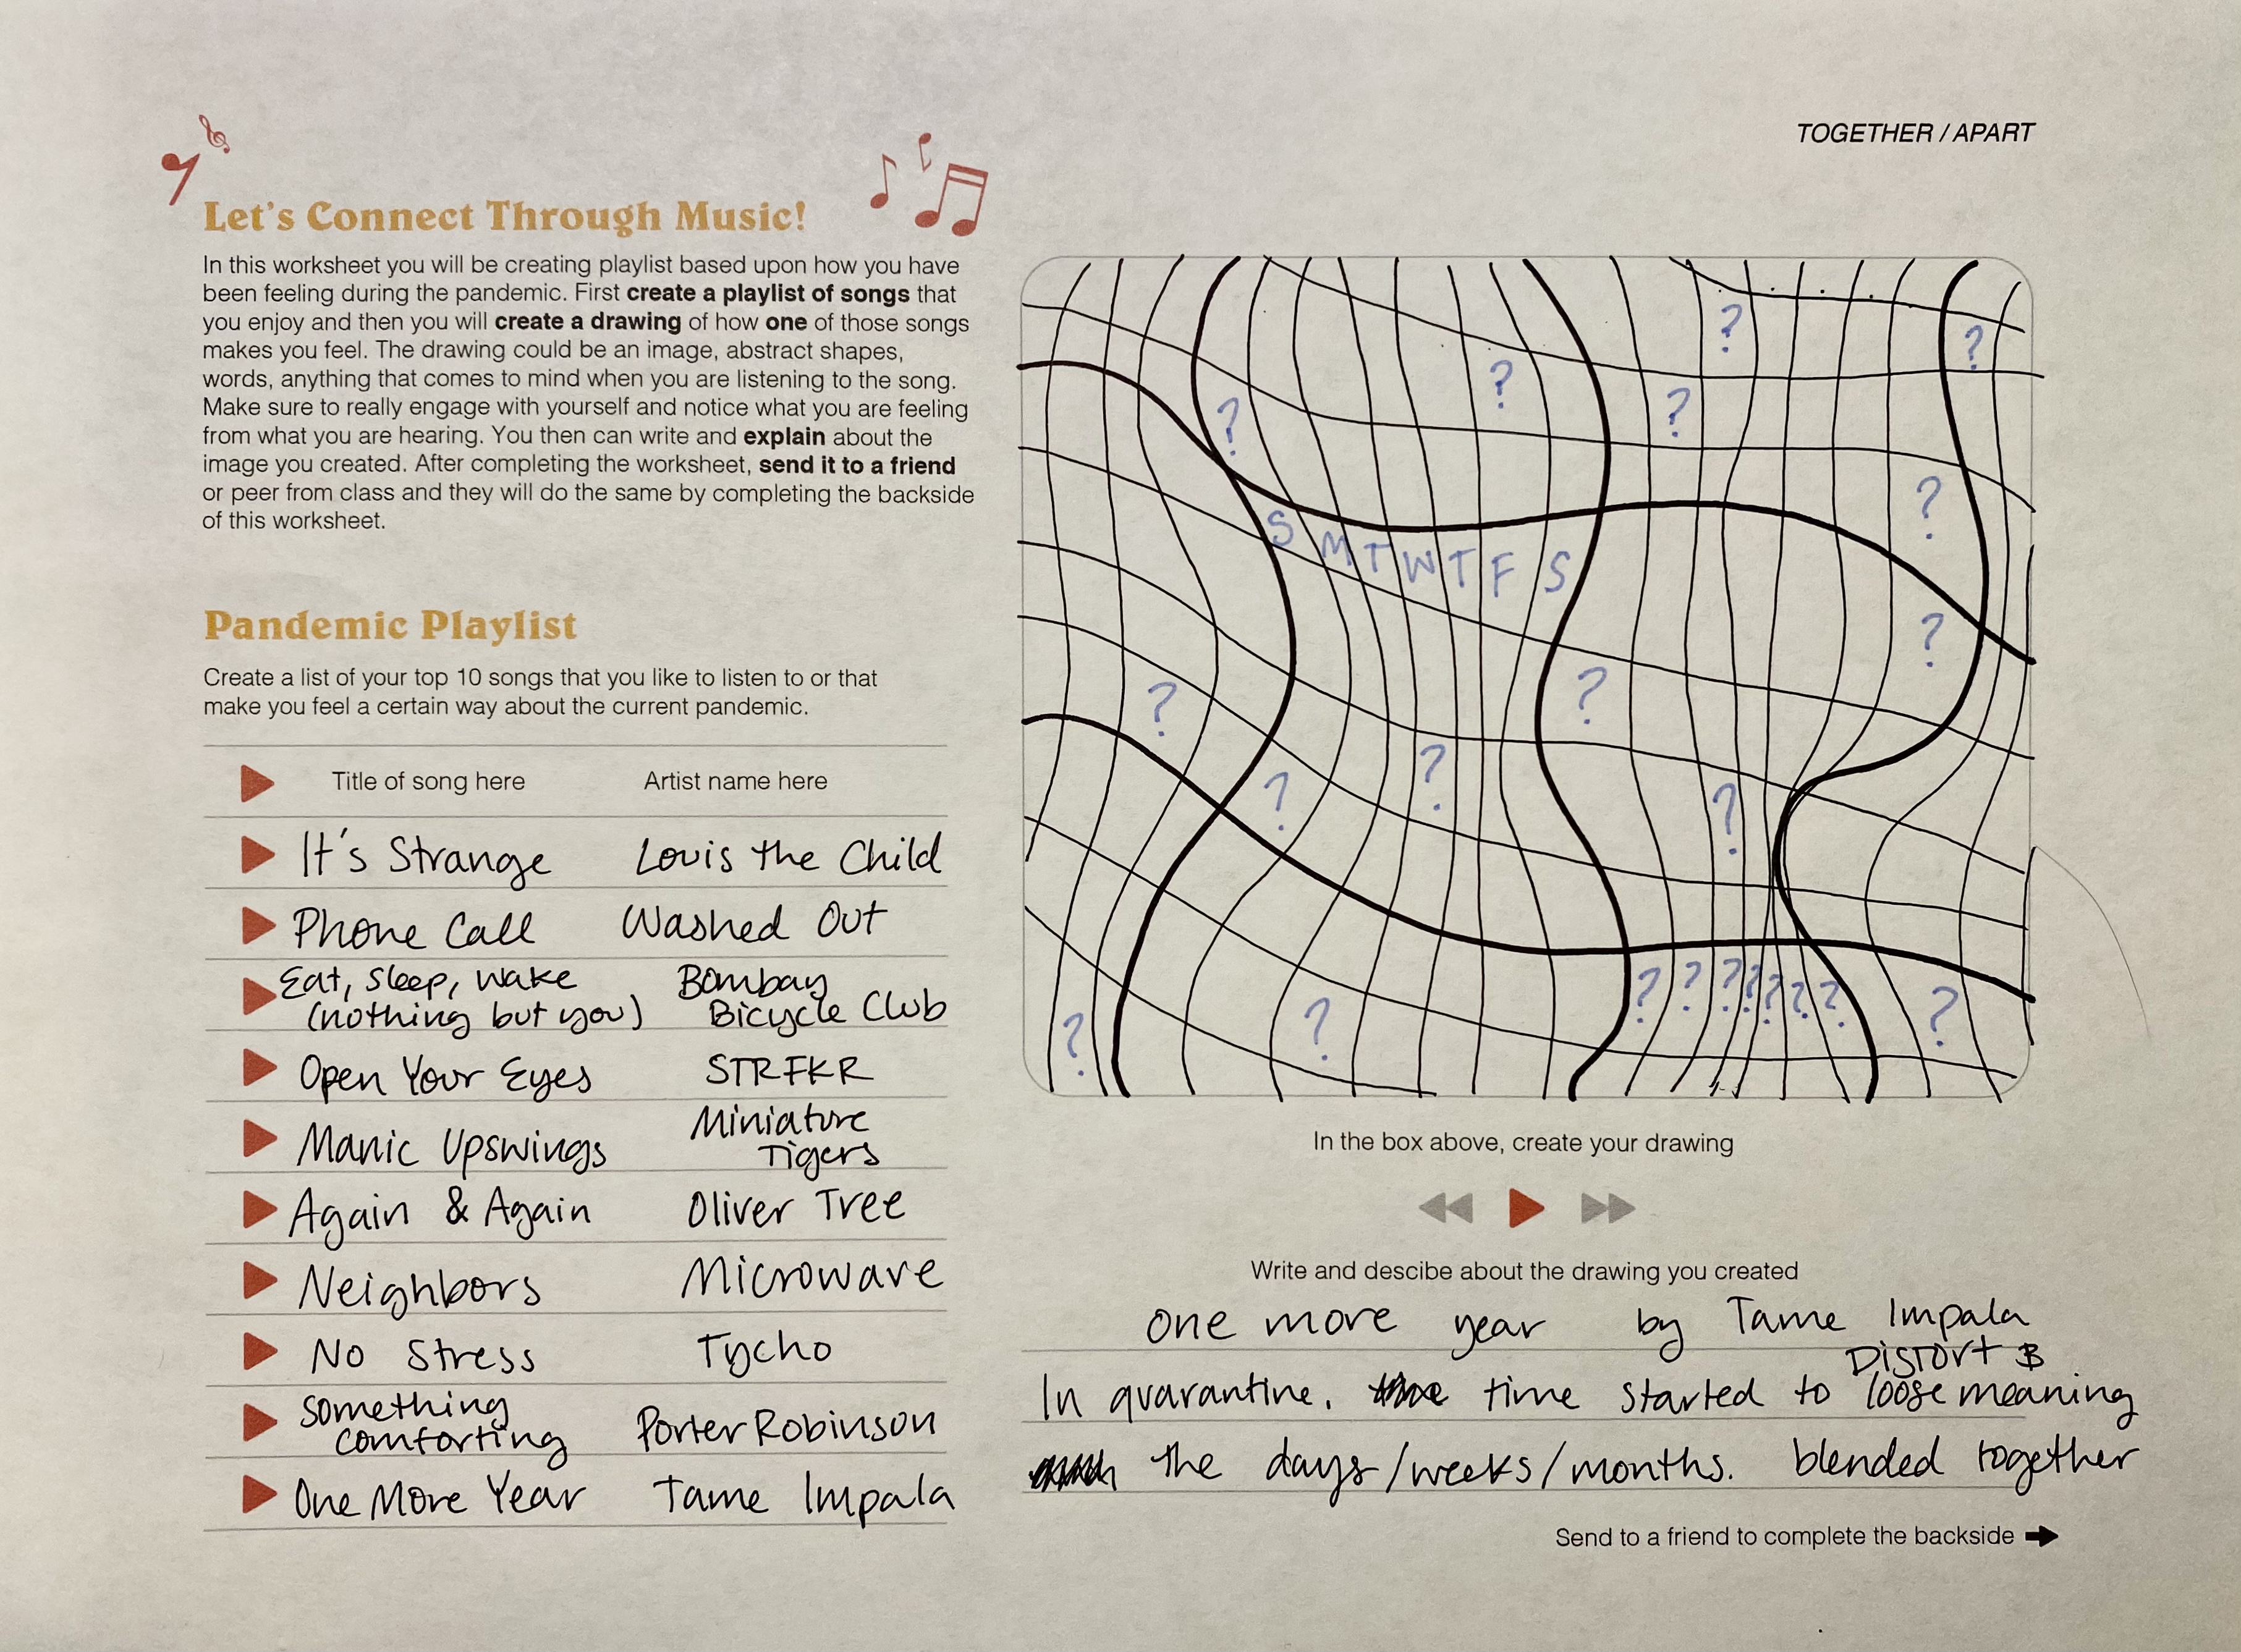 TOGETHER / APART
Let's Connect Through Music!
In this worksheet you will be creating playlist based upon how you have
been feeling during the pandemic. First create a playlist of songs that
you enjoy and then you will create a drawing of how one of those songs
makes you feel. The drawing could be an image, abstract shapes,
words, anything that comes to mind when you are listening to the song.
Make sure to really engage with yourself and notice what you are feeling
from what you are hearing. You then can write and explain about the
image you created. After completing the worksheet, send it to a friend
or peer from class and they will do the same by completing the backside
of this worksheet.
Pandemic Playlist
Create a list of your top 10 songs that you like to listen to or that
make you feel a certain way about the current pandemic.
Title of song here Artist name here
It's Strange Louis the Child
Phone Call Washed Out
Eat, Sleep, Wake Bombay
(nothing but you) Bicycle Club
Open Your Eyes STRFKR
Manic Upswings Miniature
Tigers
Again & Again Oliver Tree
Neighbors Microwave
No Stress Tycho
something
comforting Porter Robinson
One More Year Tame Impala
? ?
? ?
?
?
S M T W T F S
?
? ?
? ?
?
? ? ? ? ? ? ? ? ? ?
In the box above, create your drawing
Write and descibe about the drawing you created
one more year by Tame Impala
Distort &
In quarantine, time started to loose meaning
the days/weeks/months. blended together
Send to a friend to complete the backside